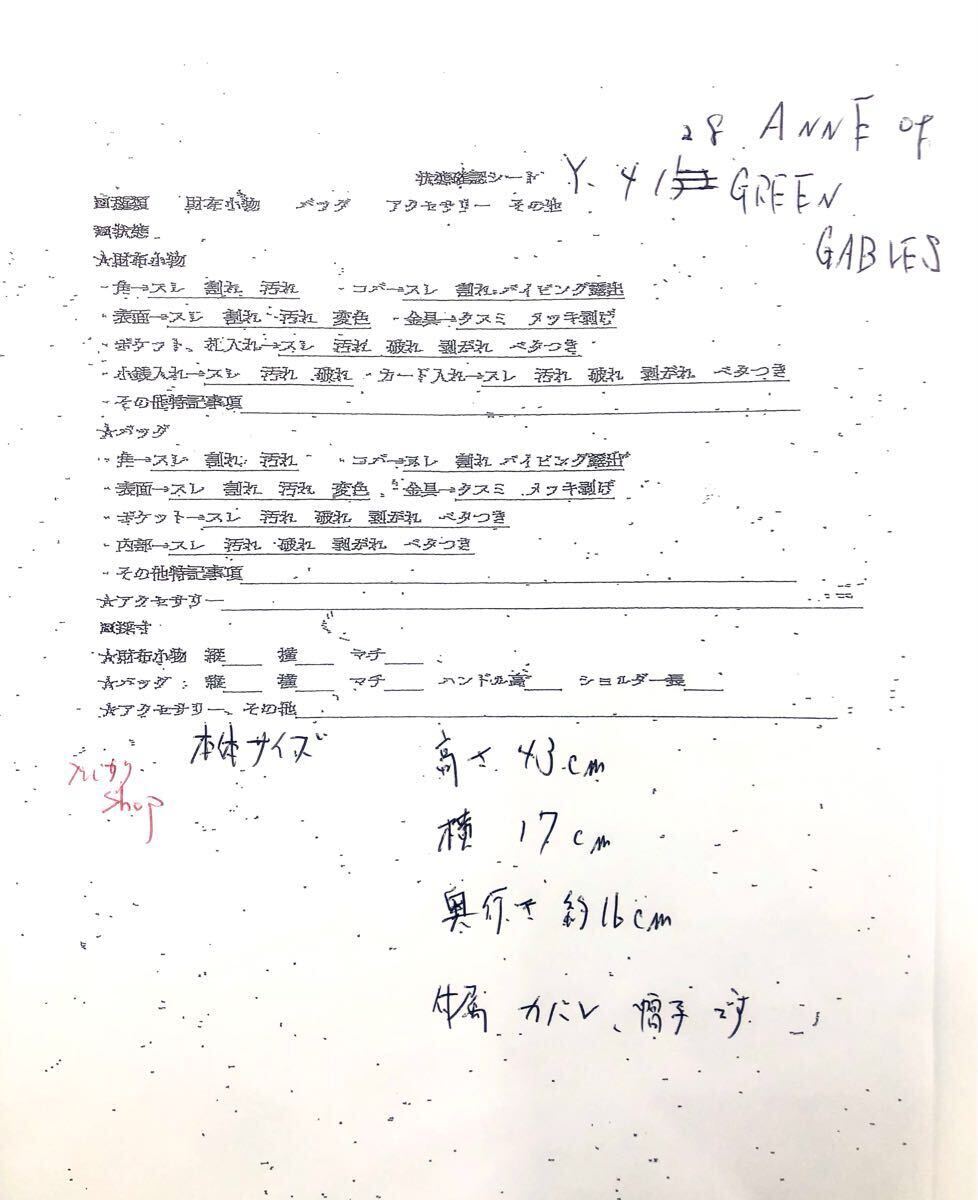 28 ANNE of
GREEN
GABLES
状態確認シート Y. 41
■種類 財布小物 バッグ アクセサリー その他
■状態
★財布小物
・角→スレ 割れ 汚れ ・コバ→スレ 割れ パイピング露出
・表面→スレ 割れ 汚れ 変色 ・金具→クスミ メッキ剥げ
・ポケット、札入れ→スレ 汚れ 破れ 剥がれ ベタつき
・小銭入れ→スレ 汚れ 破れ ・カード入れ→スレ 汚れ 破れ 剥がれ ベタつき
・その他特記事項
★バッグ
・角→スレ 割れ 汚れ ・コバ→スレ 割れ パイピング露出
・表面→スレ 割れ 汚れ 変色 ・金具→クスミ メッキ剥げ
・ポケット→スレ 汚れ 破れ 剥がれ ベタつき
・内部→スレ 汚れ 破れ 剥がれ ベタつき
・その他特記事項
★アクセサリー
■採寸
★財布小物 縦 横 マチ
★バッグ 縦 横 マチ ハンドル高 ショルダー長
★アクセサリー、その他
本体サイズ 高さ 43cm
shop
横 17cm
奥行き 約16cm
付属 カバン、帽子です